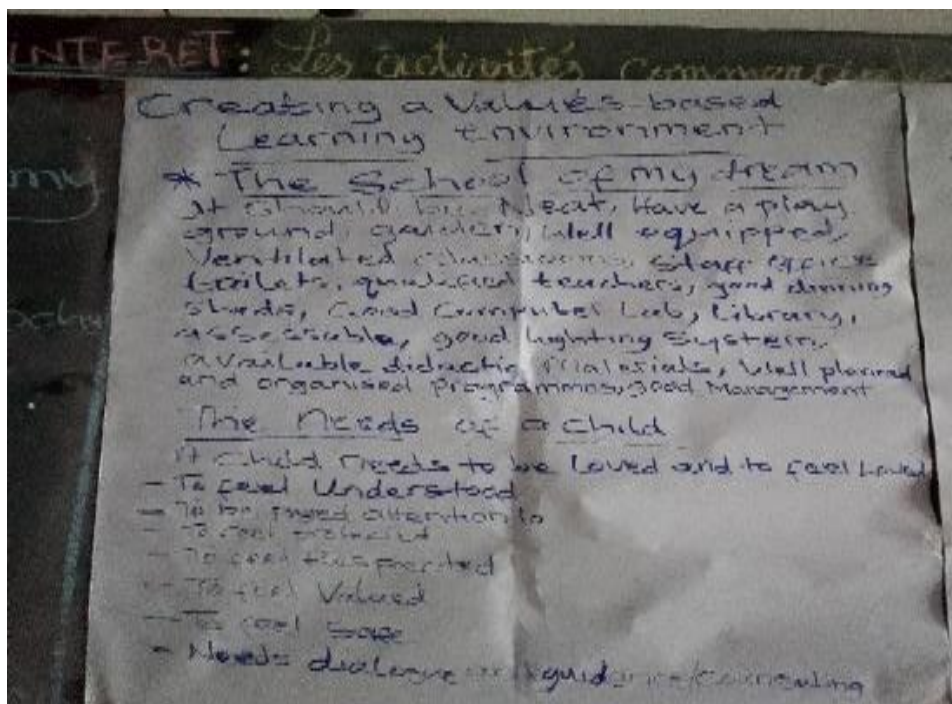 INTERET: Les activités
my
Creating a Values-based
Learning Environment
* The School of my dream
It should be Neat, Have a play
ground, garden, Well equipped,
Ventilated classrooms, staff office
toilets, qualified teachers, good dinning
sheds, Good Computer Lab, Library,
assessable, good lighting system,
available didactic Materials, Well planned
and organised programmes, good Management
The Needs of a child
A child needs to be Loved and to feel Loved
- To feel Understood
- To be payed attention to
- To feel
- To feel Respected
- To feel Valued
- To feel Safe
- Needs dialogue and guidance/counselling